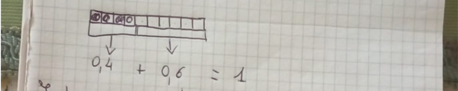 0,4 + 0,6 = 1